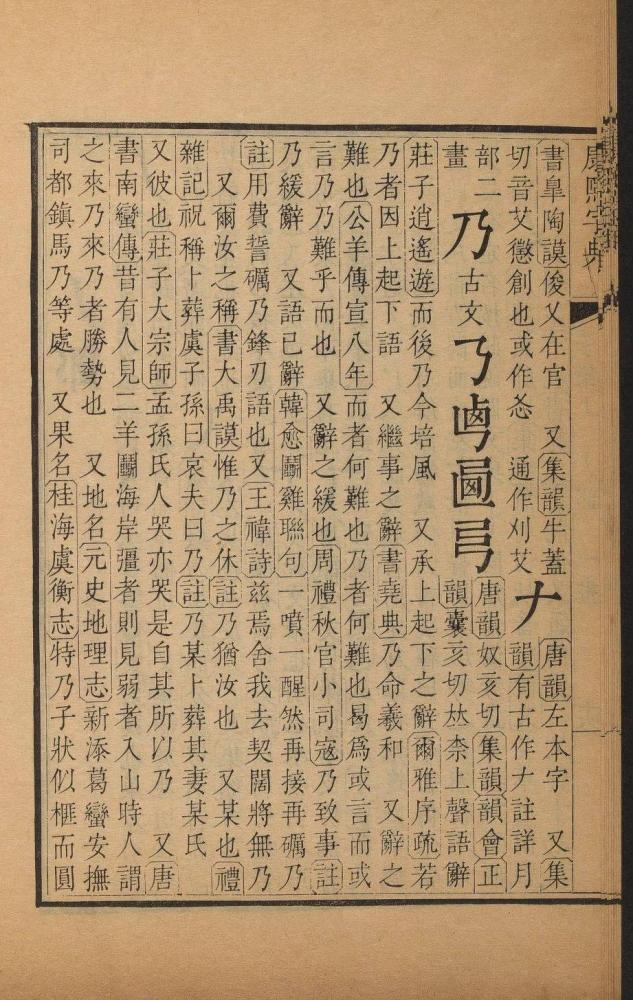 康熙字典
書臯陶謨俊乂在官　又集韻牛蓋
切音艾懲創也或作忞　通作刈艾
𠂇唐韻左本字　又集
韻有古作𠂇註詳月
部二
畫
乃古文𠄎𠧤弓
唐韻奴亥切集韻韻會正
韻囊亥切𠀤柰上聲語辭
莊子逍遙遊而後乃今培風　又承上起下之辭爾雅序疏若
乃者因上起下語　又繼事之辭書堯典乃命羲和　又辭之
難也公羊傳宣八年而者何難也乃者何難也曷爲或言而或
言乃乃難乎而也　又辭之緩也周禮秋官小司寇乃致事註
乃緩辭　又語已辭韓愈鬭雞聯句一噴一醒然再接再礪乃
註用費誓礪乃鋒刃語也又王禕詩兹焉舍我去契闊將無乃
又爾汝之稱書大禹謨惟乃之休註乃猶汝也　又某也禮
雜記祝稱卜葬虞子孫曰哀夫曰乃註乃某卜葬其妻某氏
又彼也莊子大宗師孟孫氏人哭亦哭是自其所以乃　又唐
書南蠻傳昔有人見二羊鬭海岸彊者則見弱者入山時人謂
之來乃來乃者勝勢也　又地名元史地理志新添葛蠻安撫
司都鎮馬乃等處　又果名桂海虞衡志特乃子狀似榧而圓